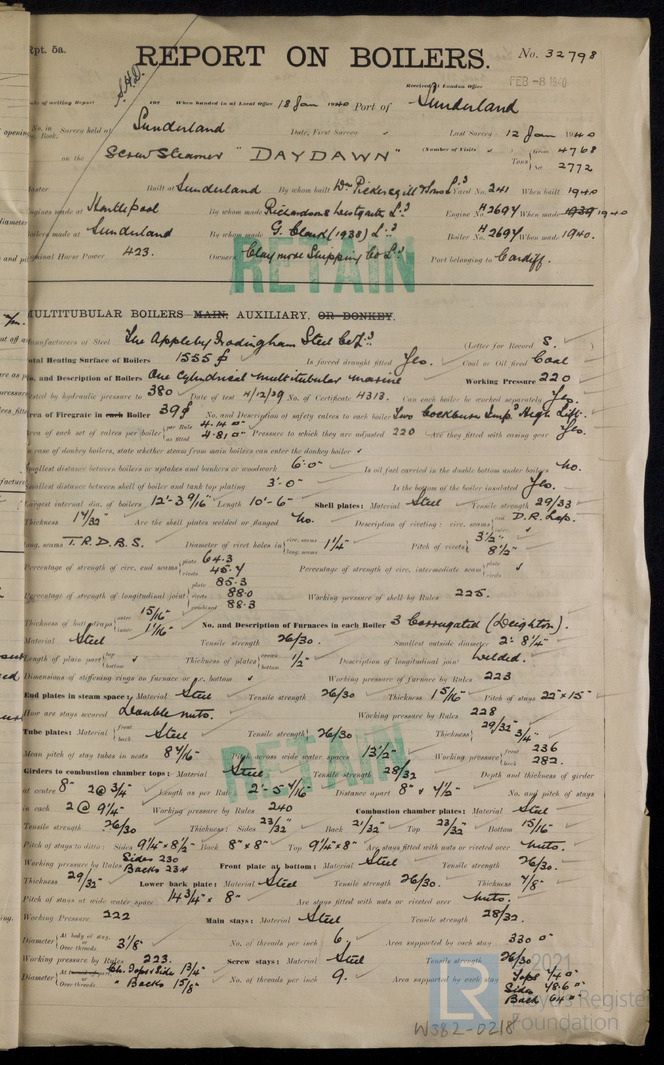 Rpt. 5a.
REPORT ON BOILERS.
No. 32798
Received at London Office FEB -8 1940
Date of writing Report 19 When handed in at Local Office 18 Jan 1940 Port of Sunderland
No. in Reg. Book. Survey held at Sunderland Date, First Survey Last Survey 12 Jan 1940
on the Screw Steamer "DAYDAWN" (Number of Visits ) Tons Gross 4768 Net 2772
Master Built at Sunderland By whom built Wm Pickersgill & Sons Ld Yard No. 241 When built 1940
Engines made at Hartlepool By whom made Richardsons Westgarth Ld Engine No. H2694 When made 1939 1940
Boilers made at Sunderland By whom made G. Clark (1938) Ld Boiler No. H2694 When made 1940.
Nominal Horse Power 423. Owners Claymore Shipping Co Ld Port belonging to Cardiff.
RETAIN
MULTITUBULAR BOILERS MAIN, AUXILIARY, OR DONKEY.
Manufacturers of Steel The Appleby Frodingham Steel Co Ld (Letter for Record S. )
Total Heating Surface of Boilers 1555 Is forced draught fitted Yes. Coal or Oil fired Coal
No. and Description of Boilers One cylindrical multitubular marine Working Pressure 220
Tested by hydraulic pressure to 380 Date of test 4/12/39 No. of Certificate 4313. Can each boiler be worked separately Yes.
Area of Firegrate in each Boiler 39 No. and Description of safety valves to each boiler Two Cockburn Imp'd High Lift.
Area of each set of valves per boiler per Rule 4.14 as fitted 4.81 Pressure to which they are adjusted 220 Are they fitted with easing gear Yes.
In case of donkey boilers, state whether steam from main boilers can enter the donkey boiler
Smallest distance between boilers or uptakes and bunkers or woodwork 6'-0" Is oil fuel carried in the double bottom under boilers No.
Smallest distance between shell of boiler and tank top plating 3'-0" Is the bottom of the boiler insulated Yes.
Largest internal dia. of boilers 12'-3 9/16" Length 10'-6" Shell plates: Material Steel Tensile strength 29/33
Thickness 1 4/32" Are the shell plates welded or flanged No. Description of riveting: circ. seams end D.R. Lap.
long. seams T.R.D.B.S. Diameter of rivet holes in circ. seams long. seams 1 1/4" Pitch of rivets 3 1/2" 8 1/2"
Percentage of strength of circ. end seams plate 64.3 rivets 45.4 Percentage of strength of circ. intermediate seam plate rivets
Percentage of strength of longitudinal joint plate 85.3 rivets 88.0 combined 88.3 Working pressure of shell by Rules 225.
Thickness of butt straps outer 15/16" inner 1 1/16" No. and Description of Furnaces in each Boiler 3 Corrugated (Deighton).
Material Steel Tensile strength 26/30. Smallest outside diameter 2'-8 1/4"
Length of plain part top bottom Thickness of plates crown bottom 1/2" Description of longitudinal joint Welded.
Dimensions of stiffening rings on furnace or c.c. bottom Working pressure of furnace by Rules 223
End plates in steam space: Material Steel Tensile strength 26/30 Thickness 1 5/16" Pitch of stays 22" x 15"
How are stays secured Double nuts. Working pressure by Rules 228
Tube plates: Material front back Steel Tensile strength 26/30 Thickness 29/32" 3/4"
Mean pitch of stay tubes in nests 8 7/16" Pitch across wide water spaces 13 1/2" Working pressure front 236 back 282.
Girders to combustion chamber tops: Material Steel Tensile strength 28/32 Depth and thickness of girder
at centre 8" 2 @ 3/4" Length as per Rule 2'-5 7/16" Distance apart 8" x 4 1/2" No. and pitch of stays
in each 2 @ 9 1/4" Working pressure by Rules 240 Combustion chamber plates: Material Steel
Tensile strength 26/30 Thickness: Sides 23/32" Back 21/32" Top 23/32" Bottom 15/16"
Pitch of stays to ditto: Sides 9 1/4" x 8 1/2" Back 8" x 8" Top 9 1/4" x 8" Are stays fitted with nuts or riveted over Nuts.
Working pressure by Rules Sides 230 Backs 234 Front plate at bottom: Material Steel Tensile strength 26/30.
Thickness 29/32" Lower back plate: Material Steel Tensile strength 26/30. Thickness 7/8"
Pitch of stays at wide water space 14 3/4" x 8" Are stays fitted with nuts or riveted over Nuts.
Working Pressure 222 Main stays: Material Steel Tensile strength 28/32.
Diameter At body of stay, Over threads 3 1/8" No. of threads per inch 6. Area supported by each stay 330
Working pressure by Rules 223. Screw stays: Material Steel Tensile strength 26/30
Diameter Ch. Tops & Side 1 3/4" " Backs 1 5/8" No. of threads per inch 9. Area supported by each stay Tops 74 Sides 78.6 Back 64
RETAIN
W382-0218
LR 2021
Lloyd's Register
Foundation